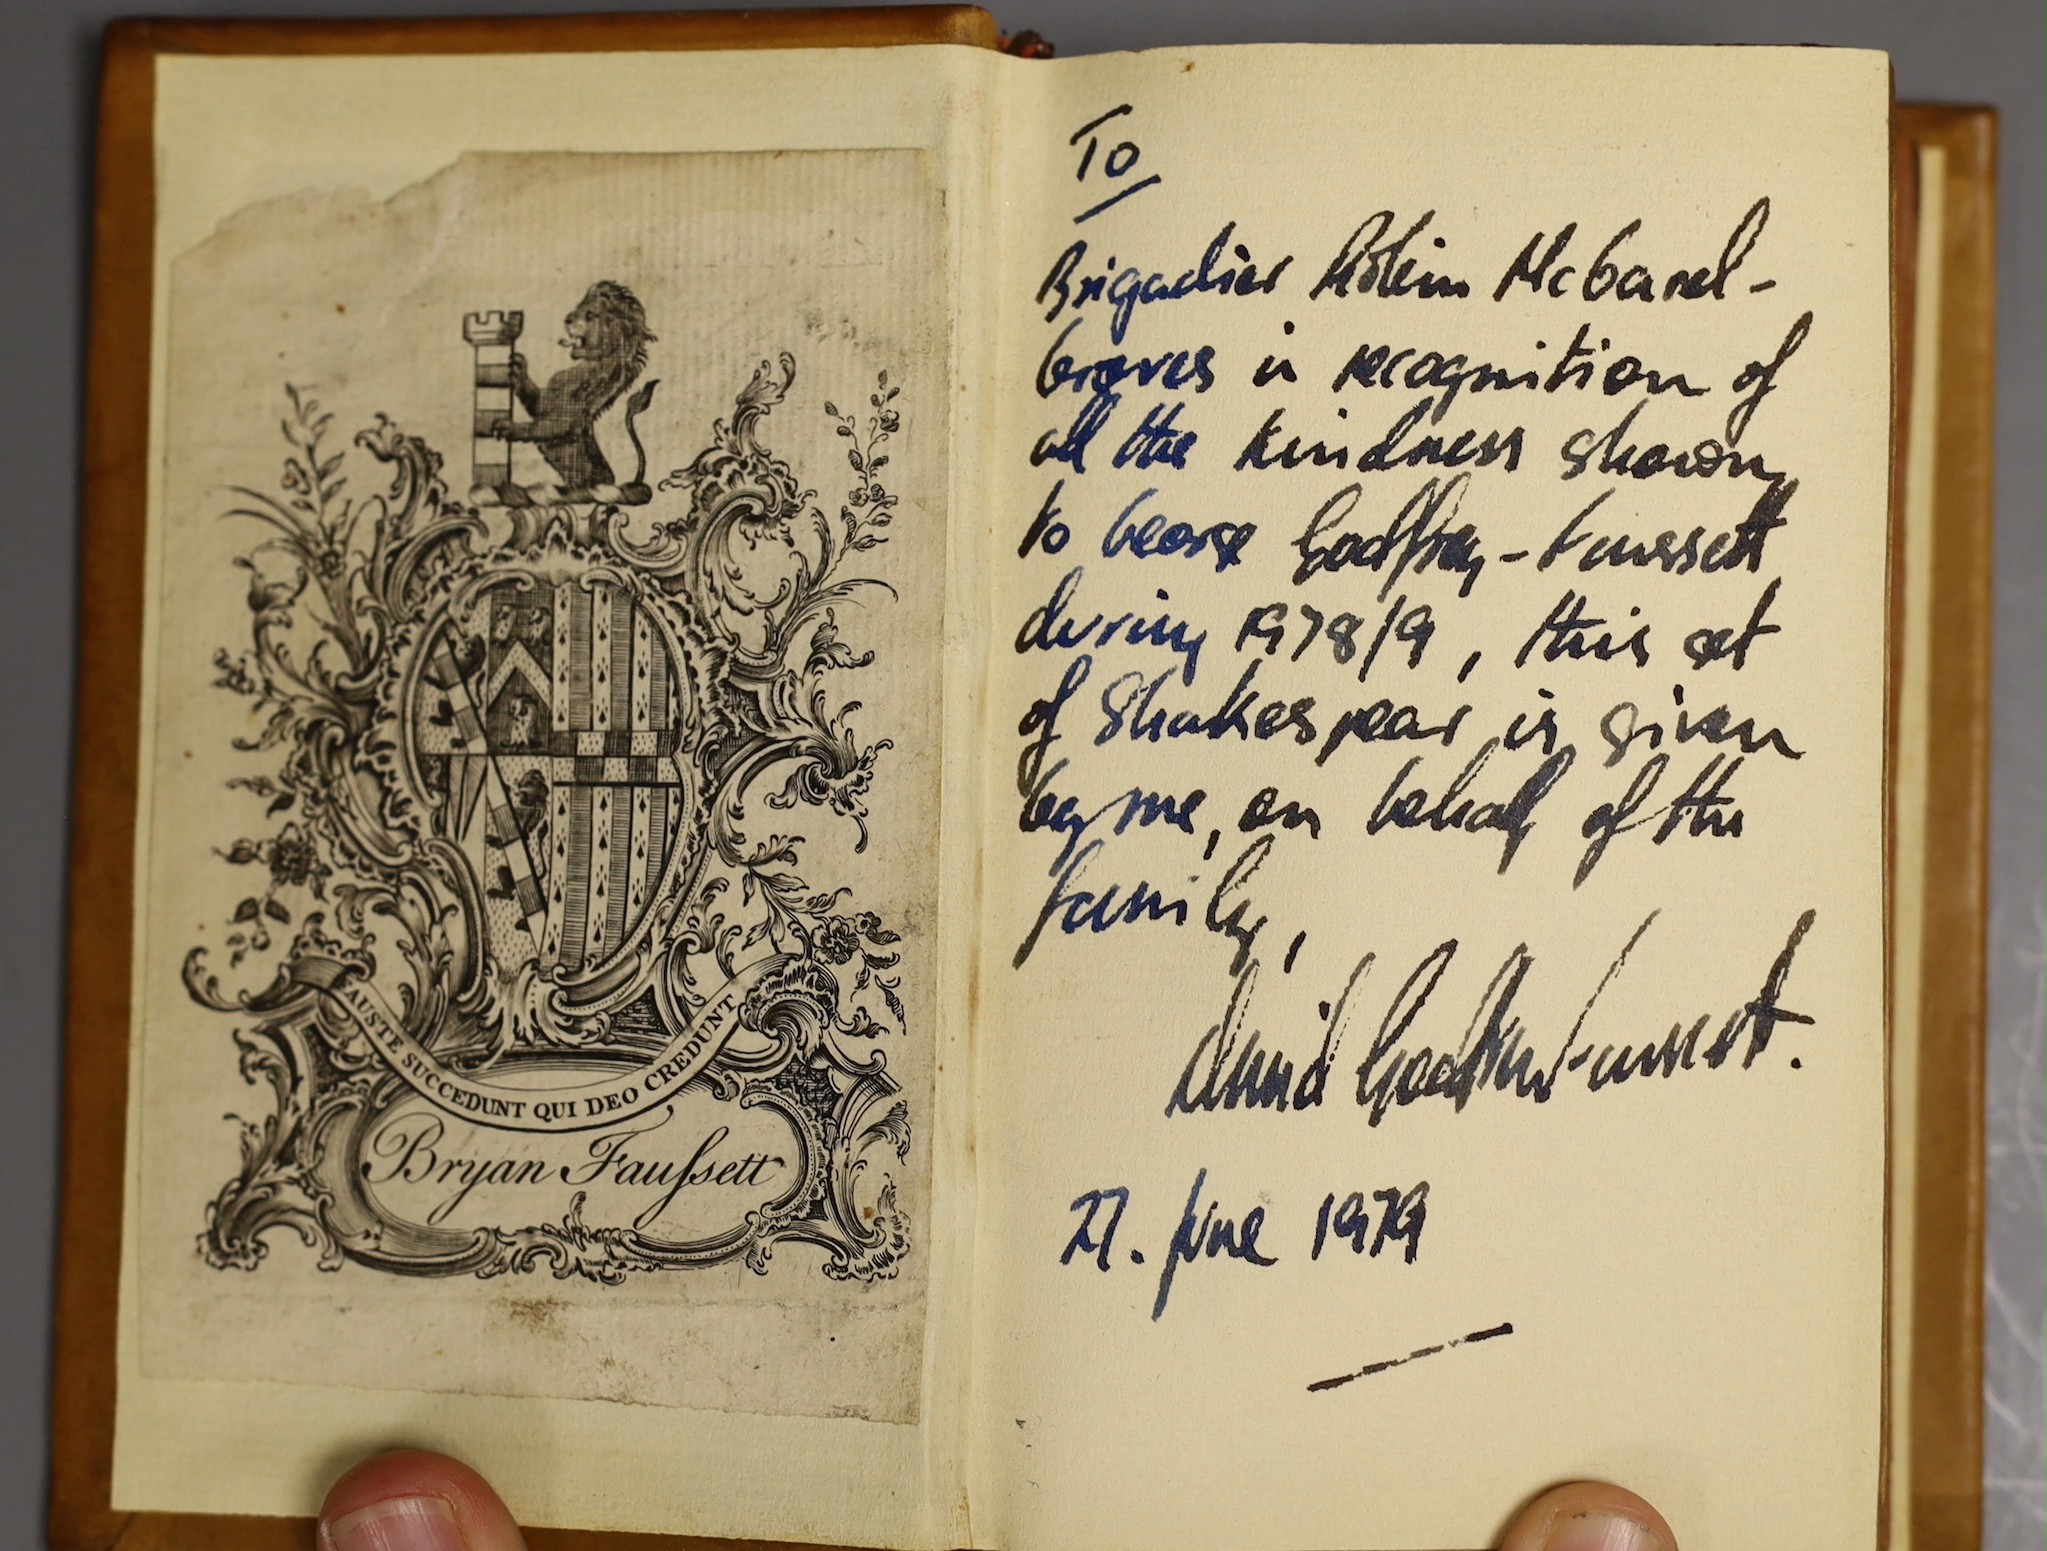 AUSTE SUCCEDUNT QUI DEO CREDUNT
Bryan Faussett
To
Brigadier Robin McGarel-
Groves in recognition of
all the kindness shown
to George Godfrey-Faussett
during 1978/9, this set
of Shakespear is given
by me, on behalf of the
family,
David Godfrey-Faussett.
27. June 1979